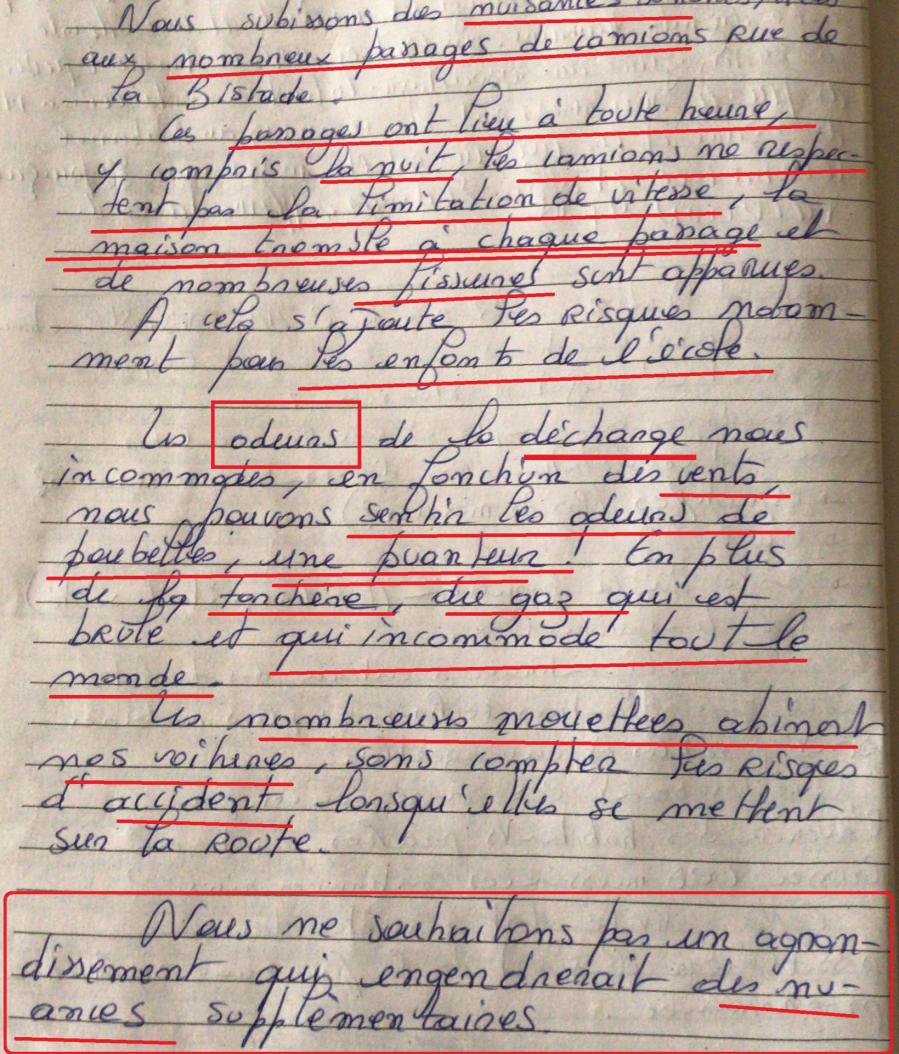 Nous subissons des nuisances
aux nombreux passages de camions Rue de
la Bistade.
Ces passages ont lieu à toute heure,
y compris la nuit, les camions ne respec-
tent pas la limitation de vitesse, la
maison tremble à chaque passage et
de nombreuses fissures sont apparues.
A cela s'ajoute les Risques notam-
ment pour les enfants de l'école.
Les odeurs de la décharge nous
incommodes, en fonction des vents,
nous pouvons sentir les odeurs de
poubelles, une puanteur ! En plus
de la torchère, du gaz qui est
brulé et qui incommode tout le
monde.
Les nombreuses mouettees abiment
nos voitures, sans compter les Risques
d'accident lorsqu'elles se mettent
sur la Route.
Nous ne souhaitons pas un agran-
dissement qui engendrerait des nu-
ances supplèmentaires.